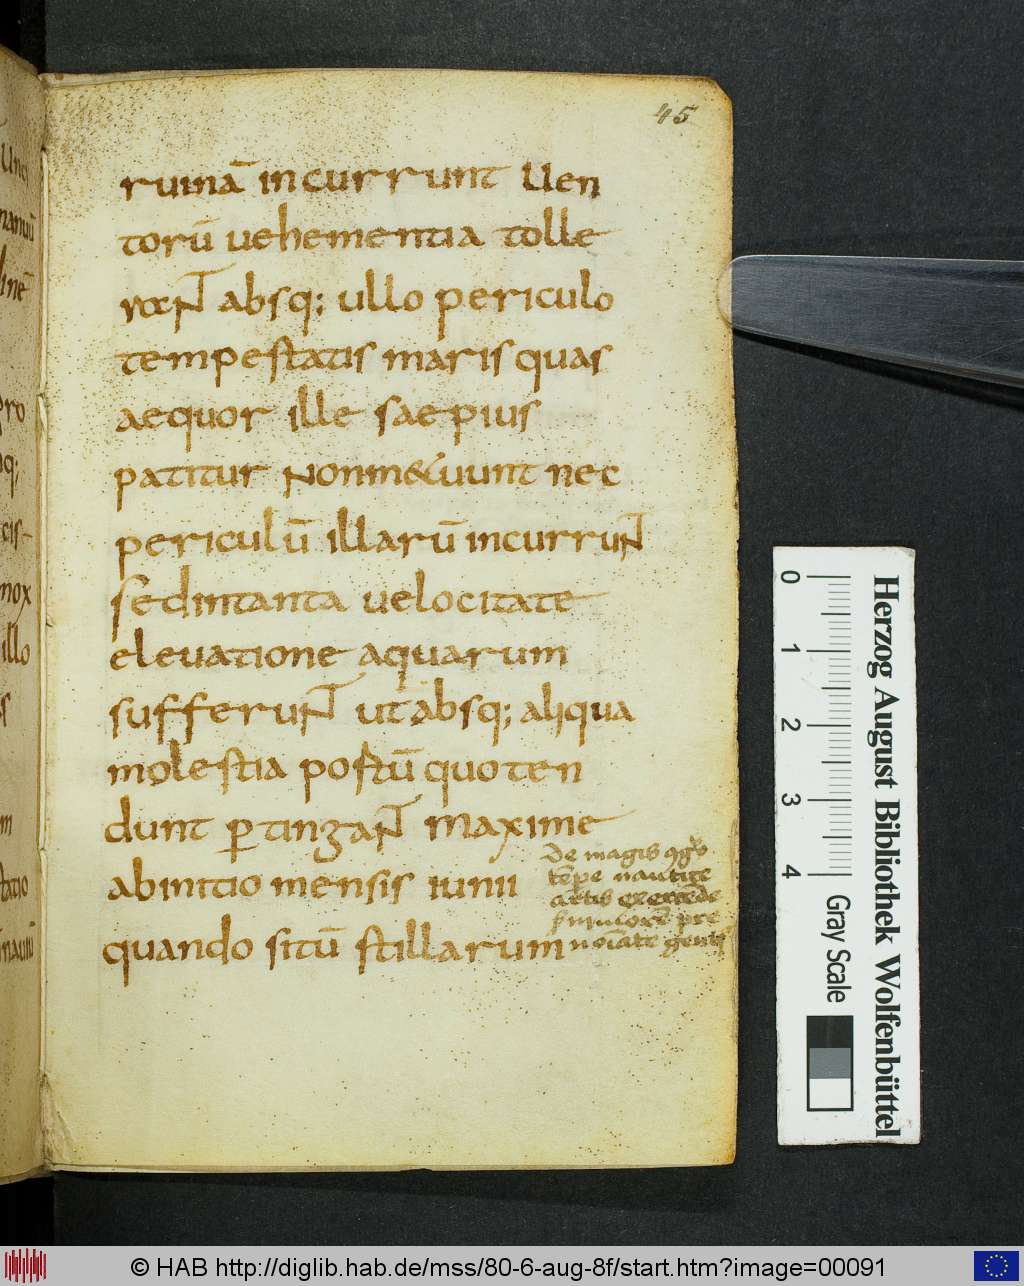 45
ruinā incurrunt Uen
torū uehementia tolle
rent absq; ullo periculo
tempestatis maris quas
aequor ille saepius
patitur Non metuunt nec
periculū illarū incurrunt
sed intanta uelocitate
eleuatione aquarum
sufferunt ut absq; aliqua
molestia portū quo ten
dunt ꝑtingant maxime
abinitio mensis iunii
quando sitū stillarum
De magis
tēpe nautice
artis
pre
gentis
illo
mox
pro
0
1
2
3
4
Gray Scale
Herzog August Bibliothek Wolfenbüttel
© HAB http://diglib.hab.de/mss/80-6-aug-8f/start.htm?image=00091